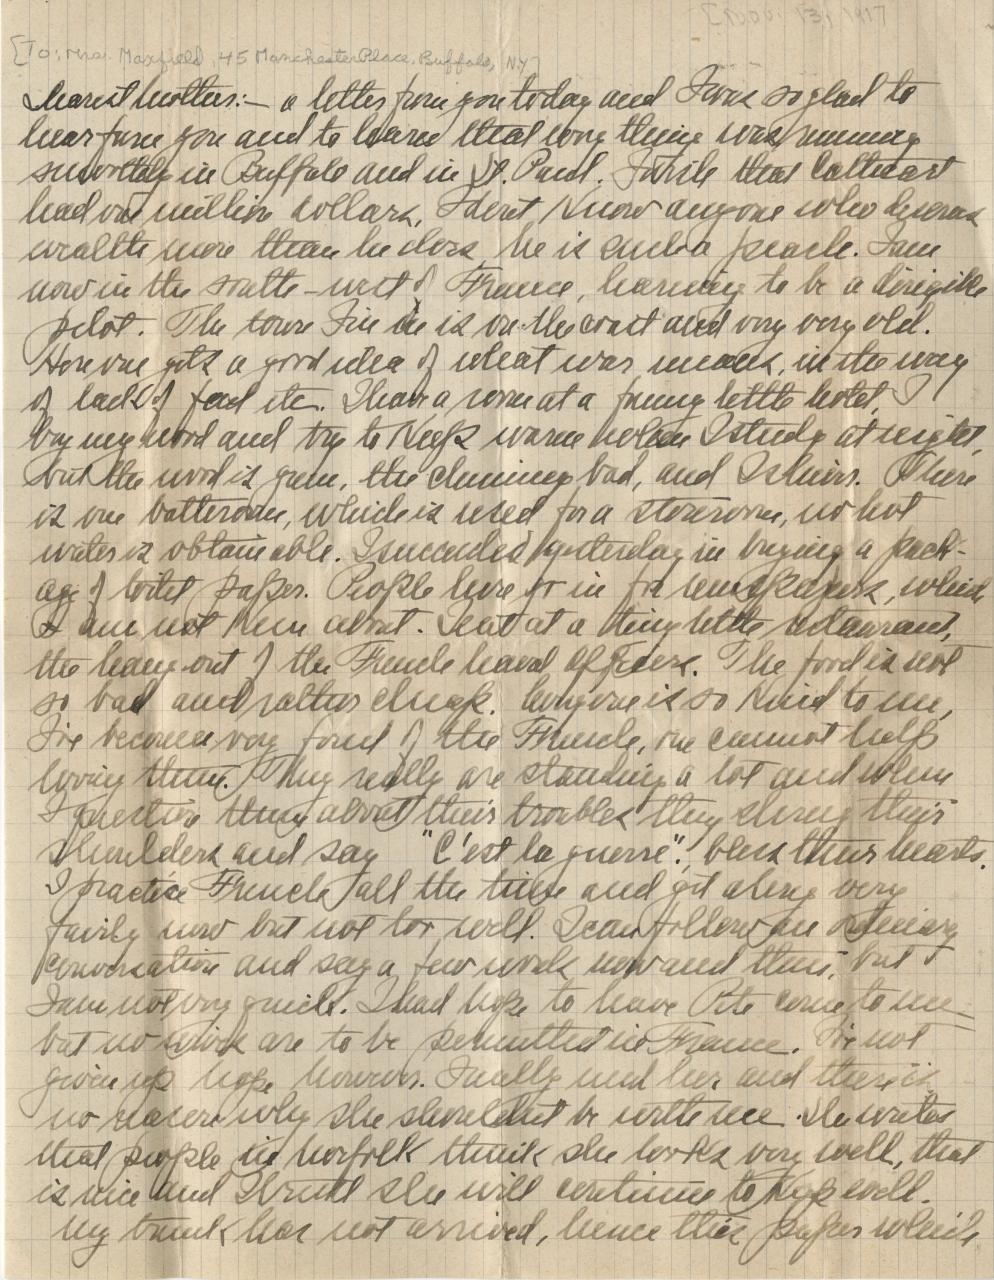 [Nov. 13, 1917
[To: Mrs. Maxfield, 45 Manchester Place, Buffalo, N.Y.]
Dearest Mother:— a letter from you today and I was so glad to
hear from you and to learn that every thing was running
smoothly in Buffalo and in St. Paul. I wish that
had one million dollars, I don't know anyone who deserves
wealth more than he does, he is such a peach. I am
now in the south-west of France, learning to be a dirigible
pilot. The town I'm in is on the coast and very very old.
Here one gets a good idea of what war means, in the way
of lack of food etc. I have a room at a funny little hotel, I
buy my wood and try to keep warm when I study at night,
but the wood is green, the chimney bad, and I shiver. There
is one bathroom, which is used for a storeroom, no hot
water is obtainable. I succeeded yesterday in buying a pack-
age of toilet paper. People here go in for newspapers, which
I am not keen about. I eat at a tiny little restaurant,
the hang-out of the French Naval Officers. The food is not
so bad and rather cheap. Everyone is so kind to me,
I've become very fond of the French, one cannot help
loving them. They really are standing a lot and when
I question them about their troubles they shrug their
shoulders and say "C'est la guerre"! bless their hearts.
I practice French all the time and get along very
fairly now but not too well. I can follow an ordinary
conversation and say a few words now and then, but
I am not very quick. I had hope to have Pete come to me
but no wives are to be permitted in France. I've not
given up hope however. I really need her and there is
no reason why she shouldn't be with me. She writes
that people in Norfolk think she looks very well, that
is nice and I trust she will continue to keep well.
My trunk has not arrived, hence this paper which